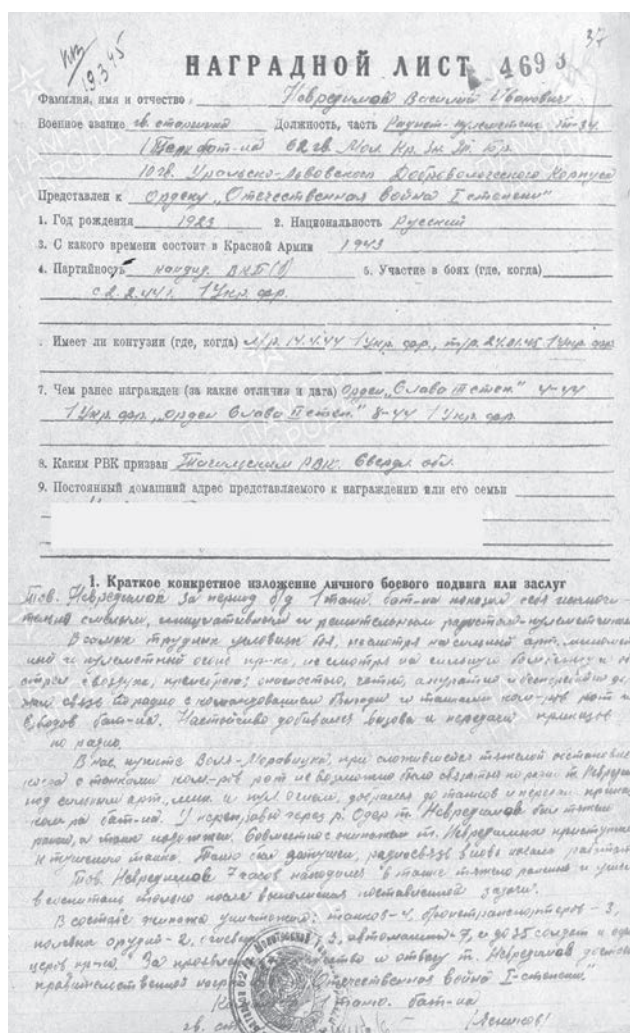 37
19345
НАГРАДНОЙ ЛИСТ 469
Фамилия, имя и отчество Невредимов Василий Иванович
Военное звание гв. старшина Должность, часть Радист-пулеметчик Т-34
1 бат-на 62 гв. Мол. Кр. Зн. бр.
10 гв. Уральско-Львовского Добровольческого Корпуса
Представлен к Ордену „Отечественная война I степени"
1. Год рождения 1923 2. Национальность Русский
3. С какого времени состоит в Красной Армии 1943
4. Партийность кандид. ВКП(б) 5. Участие в боях (где, когда)
с 2.2.44 г. 1 Укр. фр.
. Имеет ли контузии (где, когда) л/р. 14.4.44 1 Укр. фр., т/р. 24.01.45 1 Укр. фр.
7. Чем ранее награжден (за какие отличия и дата) Орден „Слава III степ." 4-44
1 Укр. фр. „орден Слава II степ." 8-44 1 Укр. фр.
8. Каким РВК призван Тагильским РВК. Свердл. обл.
9. Постоянный домашний адрес представляемого к награждению или его семьи
1. Краткое конкретное изложение личного боевого подвига или заслуг
Тов. Невредимов за период б/д 1 танк. бат-на показал себя
смелым, инициативным и решительным радистом-пулеметчиком
В самых трудных условиях боя, несмотря на сильный арт. миномет
ный и пулеметный огонь пр-ка, не смотря на сильную бомбежку и об
стрел с воздуха, опасностью, четко, аккуратно и бесперебойно дер
жал связь по радио с командованием бригады и танками ком-ров рот и
взводов бат-на. Настойчиво добивался вызова и передачи приказов
по радио.
В нас. пункте Воля-Моравицка, при сложившейся тяжелой обстановке
когда с танками ком-ров рот невозможно было связаться по рации т. Невредимов
под сильным арт., мин. и пул. огнем, добрался до танков и передал приказ
ком-ра бат-на. У переправы через р. Одер т. Невредимов был тяжело
ранен, а танк подожжен. Совместно с экипажем т. Невредимов приступил
к тушению танка. Танк был затушен, радиосвязь вновь начала работать
Тов. Невредимов 7 часов находился в танке тяжело ранений и ушел
в госпиталь только после выполнения поставленной задачи.
В составе экипажа уничтожил: танков-4, бронетранспортеров-3,
полевых орудий-2, 3, автомашин-7, и до 35 солдат и офи
церов пр-ка. За и отвагу т. Невредимов достоин
правительственной награды Отечественная война I-степени."
1 танк. бат-на
гв. /Ясников/